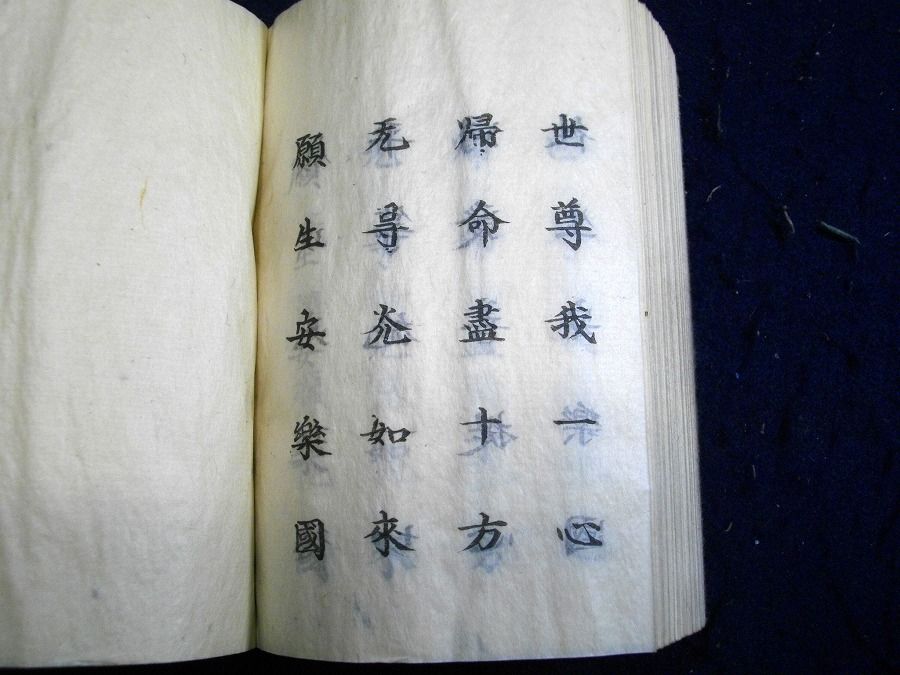 世尊我一心
歸命盡十方
旡㝵灮如來
願生安樂國